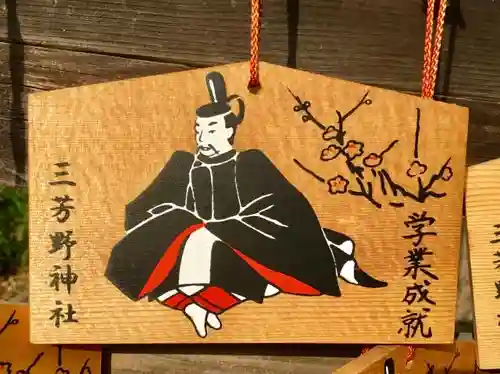 学業成就
三芳野神社